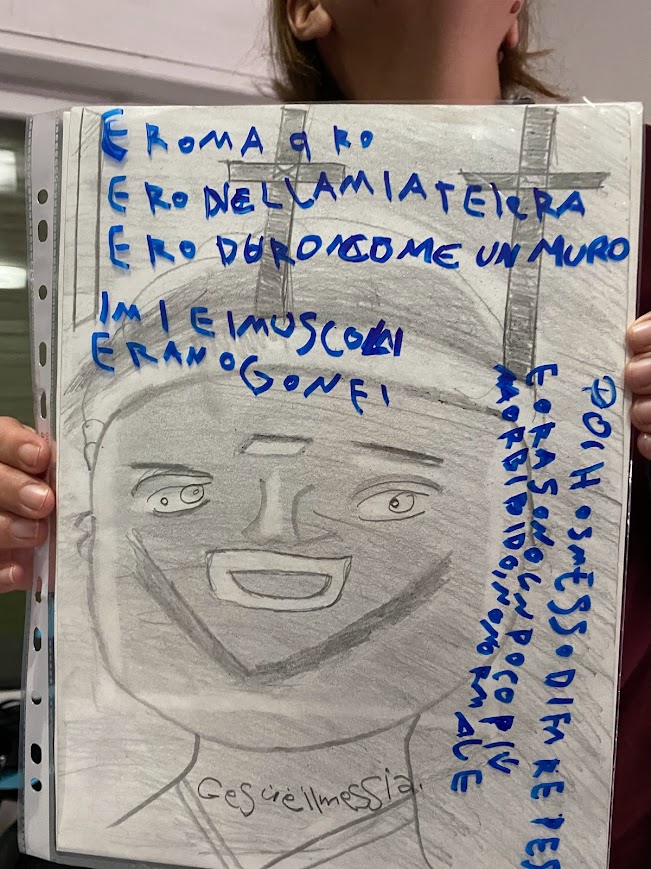 E ROMA QRO
ERO NELLA MIA TERRA
ERO DURO COME UN MURO
I MIEI MUSCOLI
ERANO GONFI
POI HO SMESSO DI FARE PES
E ORA SONO UN POCO PIU
MORBIDI DI NORMALE
Gesu è il messia.